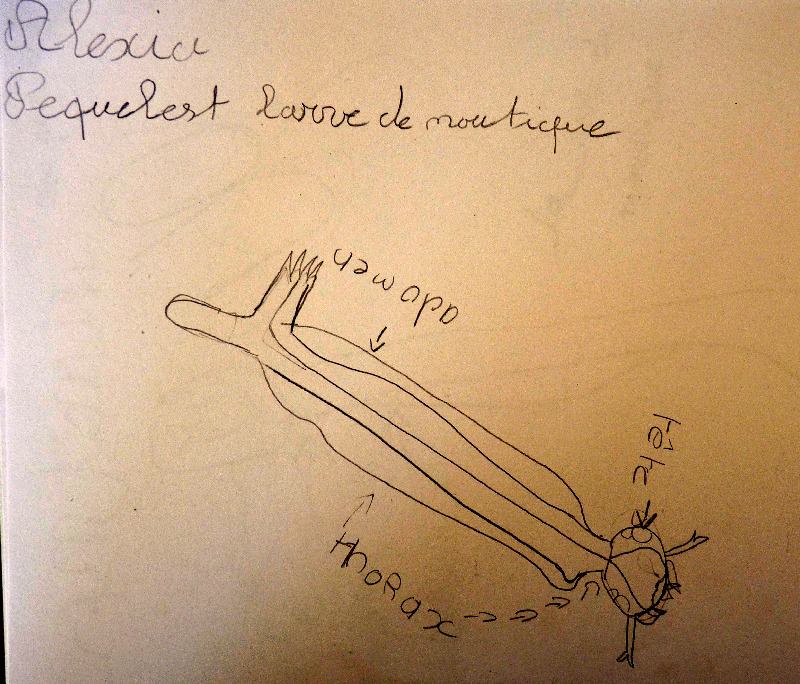 Alexia
Pequelest larve de moutique
abdomen
tête
thorax